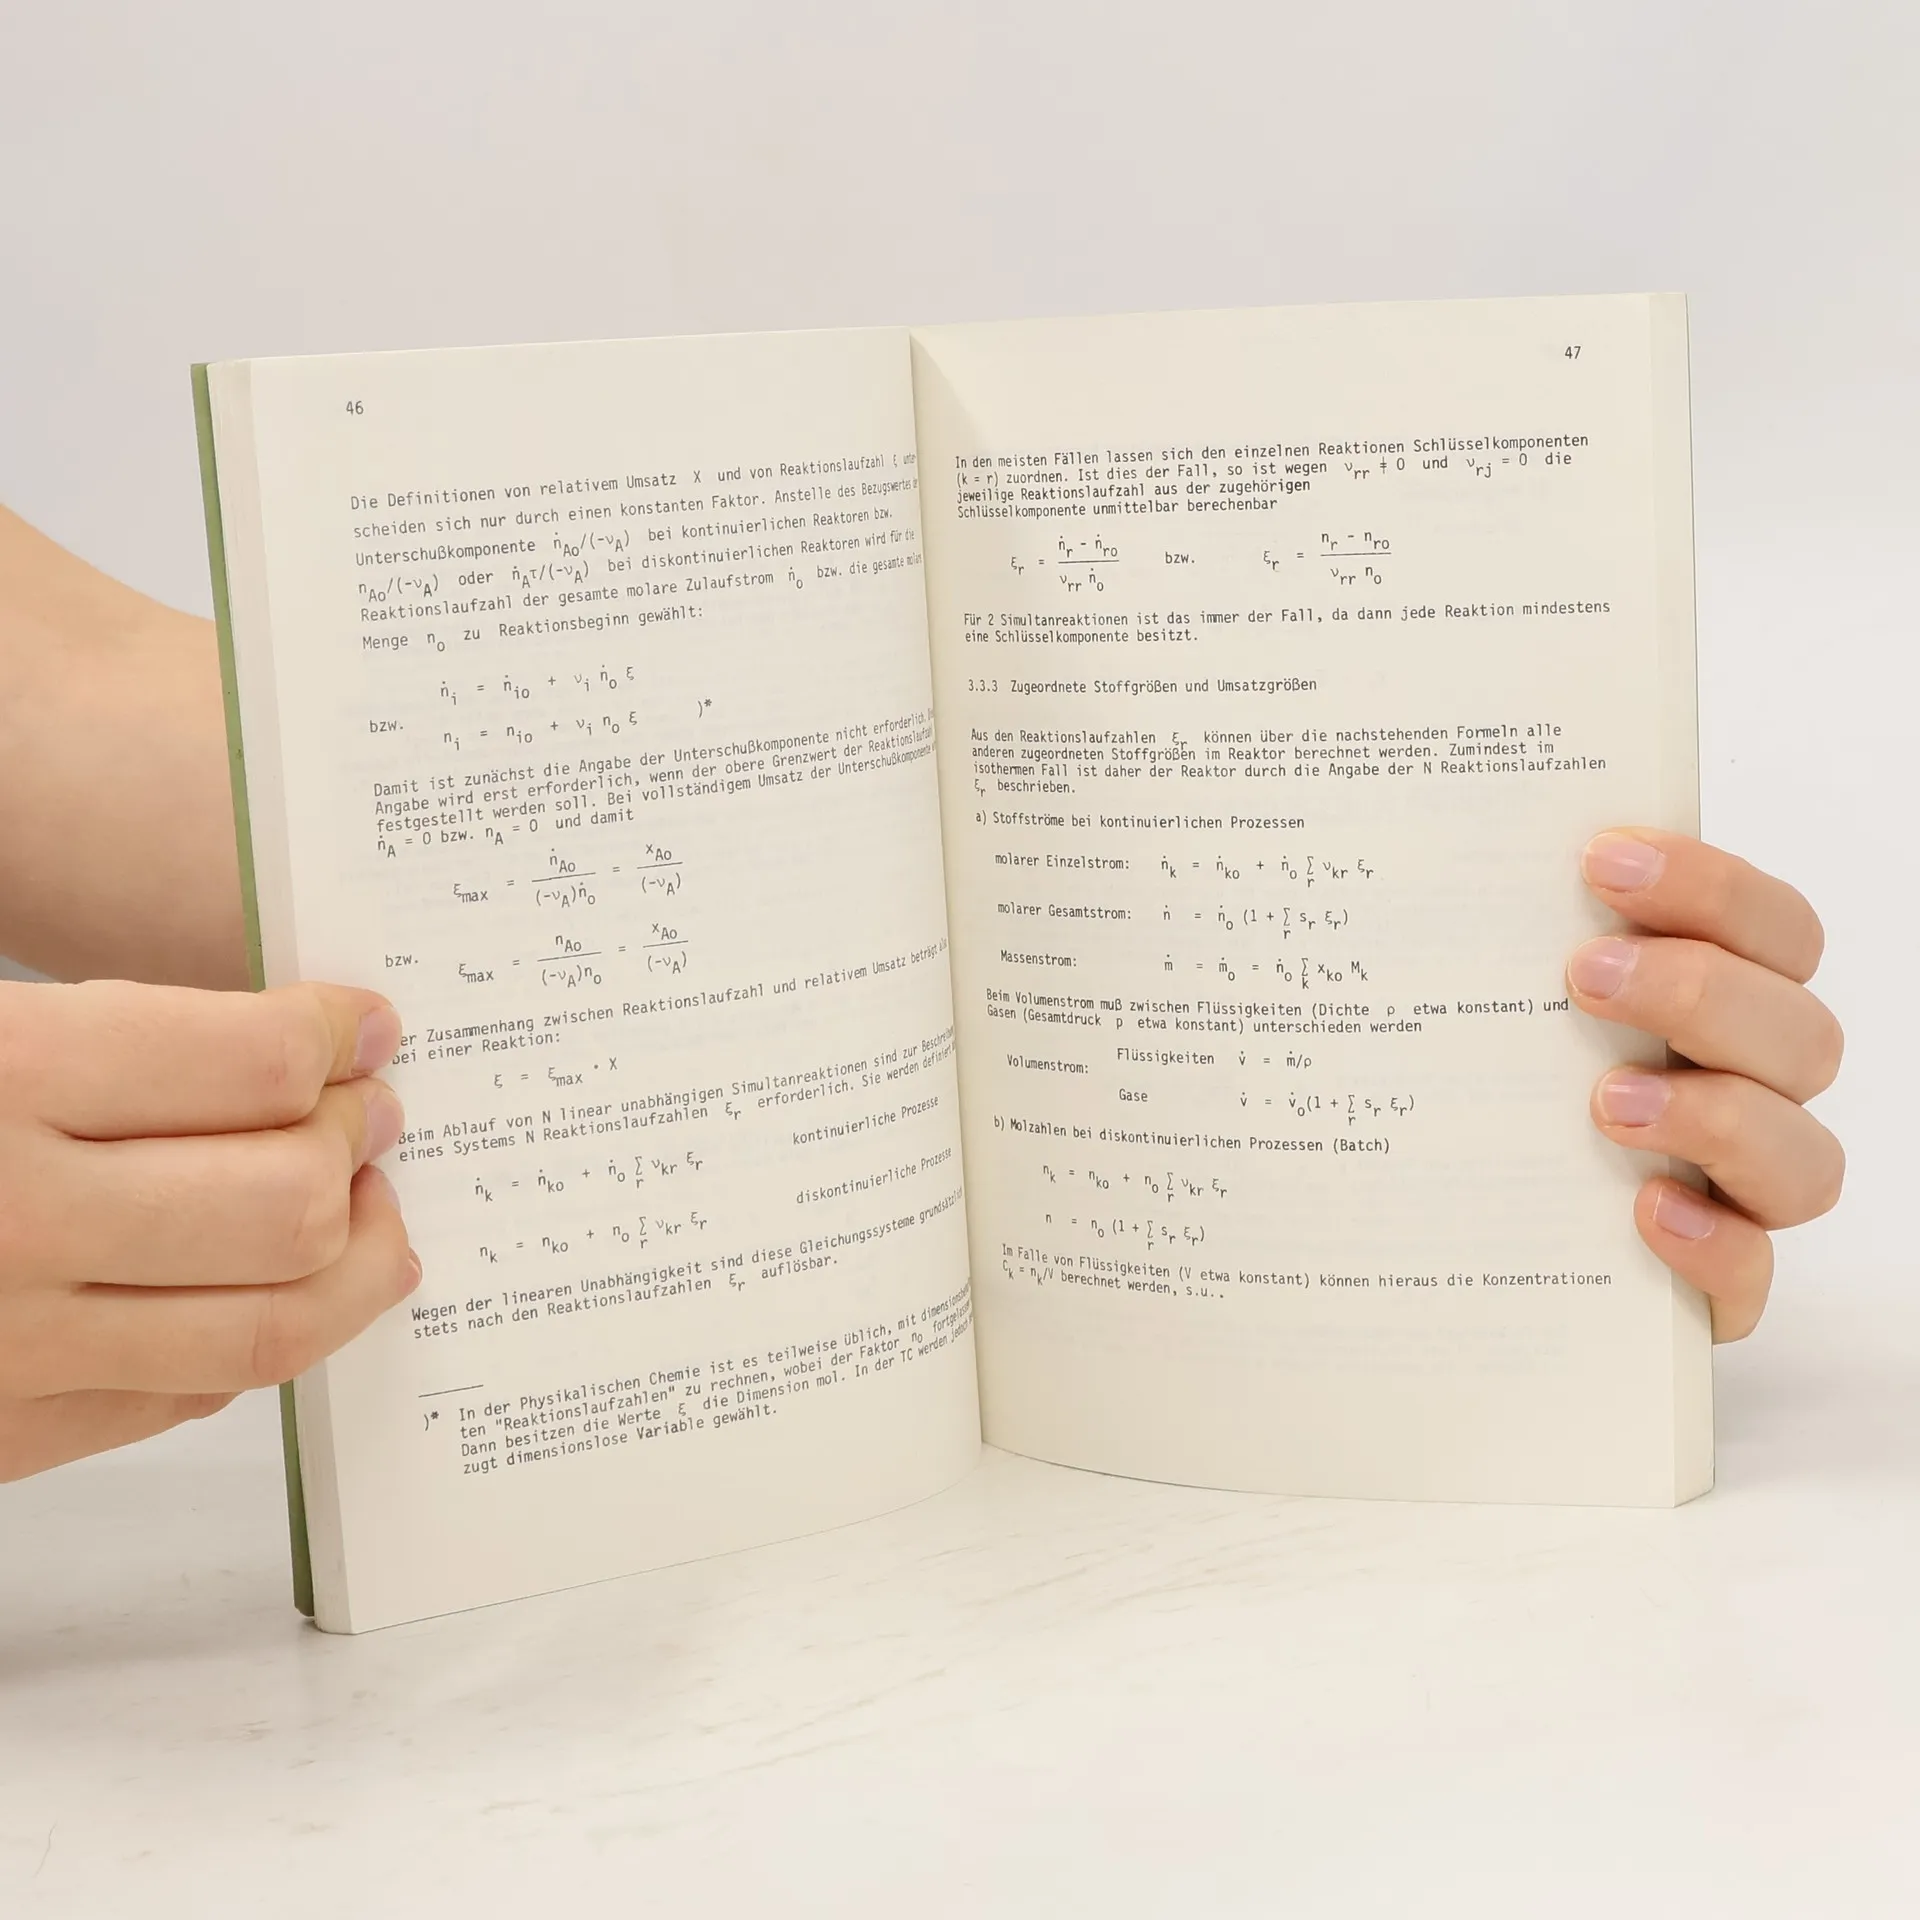 46
Die Definitionen von relativem Umsatz X und von Reaktionslaufzahl ξ unter-
scheiden sich nur durch einen konstanten Faktor. Anstelle des Bezugswertes der
Unterschußkomponente ṅ_Ao/(-ν_A) bei kontinuierlichen Reaktoren bzw.
n_Ao/(-ν_A) oder ṅ_Aτ/(-ν_A) bei diskontinuierlichen Reaktoren wird für die
Reaktionslaufzahl der gesamte molare Zulaufstrom ṅ_o bzw. die gesamte
Menge n_o zu Reaktionsbeginn gewählt:
ṅ_i = ṅ_io + ν_i ṅ_o ξ
bzw. n_i = n_io + ν_i n_o ξ )*
Damit ist zunächst die Angabe der Unterschußkomponente nicht erforderlich.
Angabe wird erst erforderlich, wenn der obere Grenzwert der Reaktionslaufzahl
festgestellt werden soll. Bei vollständigem Umsatz der Unterschußkomponente
ṅ_A = 0 bzw. n_A = 0 und damit
ξ_max = ṅ_Ao / (-ν_A)ṅ_o = x_Ao / (-ν_A)
bzw. ξ_max = n_Ao / (-ν_A)n_o = x_Ao / (-ν_A)
er Zusammenhang zwischen Reaktionslaufzahl und relativem Umsatz beträgt
bei einer Reaktion:
ξ = ξ_max · X
Beim Ablauf von N linear unabhängigen Simultanreaktionen sind zur
eines Systems N Reaktionslaufzahlen ξ_r erforderlich. Sie werden definiert
ṅ_k = ṅ_ko + ṅ_o Σ_r ν_kr ξ_r kontinuierliche Prozesse
n_k = n_ko + n_o Σ_r ν_kr ξ_r diskontinuierliche Prozesse
Wegen der linearen Unabhängigkeit sind diese Gleichungssysteme grundsätzlich
stets nach den Reaktionslaufzahlen ξ_r auflösbar.
)* In der Physikalischen Chemie ist es teilweise üblich, mit
ten "Reaktionslaufzahlen" zu rechnen, wobei der Faktor n_o
Dann besitzen die Werte ξ die Dimension mol. In der TC werden jedoch
zugt dimensionslose Variable gewählt.
47
In den meisten Fällen lassen sich den einzelnen Reaktionen Schlüsselkomponenten
(k = r) zuordnen. Ist dies der Fall, so ist wegen ν_rr ≠ 0 und ν_rj = 0 die
jeweilige Reaktionslaufzahl aus der zugehörigen
Schlüsselkomponente unmittelbar berechenbar
ξ_r = (ṅ_r - ṅ_ro) / (ν_rr ṅ_o) bzw. ξ_r = (n_r - n_ro) / (ν_rr n_o)
Für 2 Simultanreaktionen ist das immer der Fall, da dann jede Reaktion mindestens
eine Schlüsselkomponente besitzt.
3.3.3 Zugeordnete Stoffgrößen und Umsatzgrößen
Aus den Reaktionslaufzahlen ξ_r können über die nachstehenden Formeln alle
anderen zugeordneten Stoffgrößen im Reaktor berechnet werden. Zumindest im
isothermen Fall ist daher der Reaktor durch die Angabe der N Reaktionslaufzahlen
ξ_r beschrieben.
a) Stoffströme bei kontinuierlichen Prozessen
molarer Einzelstrom: ṅ_k = ṅ_ko + ṅ_o Σ_r ν_kr ξ_r
molarer Gesamtstrom: ṅ = ṅ_o (1 + Σ_r s_r ξ_r)
Massenstrom: ṁ = ṁ_o = ṅ_o Σ_k x_ko M_k
Beim Volumenstrom muß zwischen Flüssigkeiten (Dichte ρ etwa konstant) und
Gasen (Gesamtdruck p etwa konstant) unterschieden werden
Volumenstrom: Flüssigkeiten v̇ = ṁ/ρ
Gase v̇ = v̇_o(1 + Σ_r s_r ξ_r)
b) Molzahlen bei diskontinuierlichen Prozessen (Batch)
n_k = n_ko + n_o Σ_r ν_kr ξ_r
n = n_o (1 + Σ_r s_r ξ_r)
Im Falle von Flüssigkeiten (V etwa konstant) können hieraus die Konzentrationen
C_k = n_k/V berechnet werden, s.u..